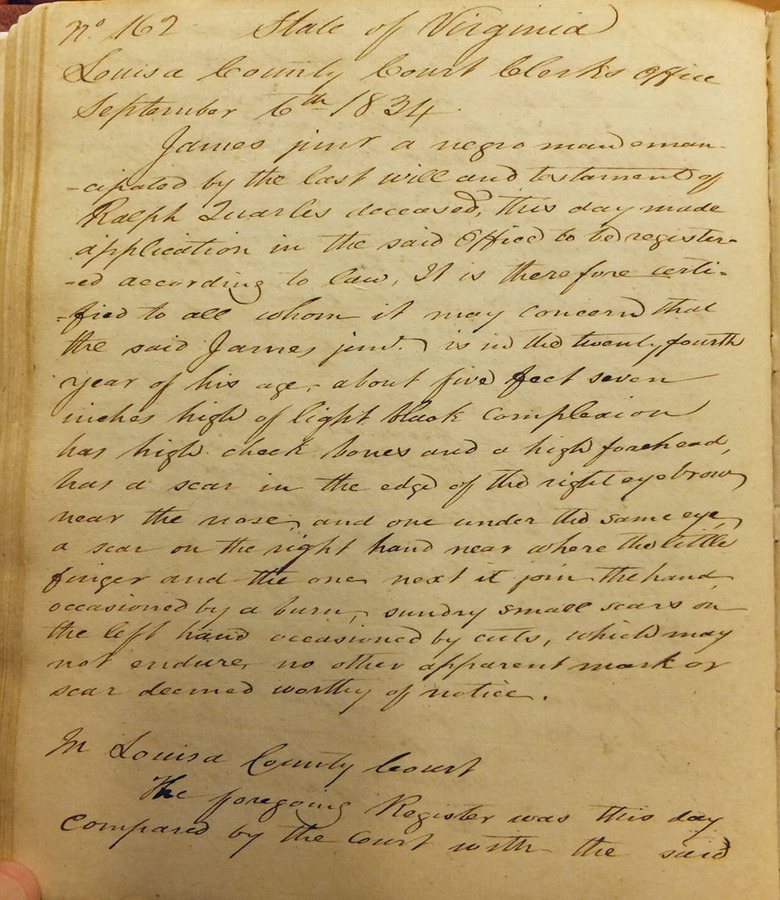 no 162 State of Virginia
Louisa County Court Clerks Office
September 6th 1834
James junr a negro man eman-
-cipated by the last will and testament of
Ralph Quarles deceased, this day made
application in the said Office to be register-
-ed according to law, It is therefore certi-
-fied to all whom it may concern that
the said James junr. is in the twenty fourth
year of his age, about five feet seven
inches high of light black complexion
has high cheek bones and a high forehead,
has a scar in the edge of the right eyebrow
near the nose, and one under the same eye,
a scar on the right hand near where the little
finger and the one next it join the hand
occasioned by a burn, sundry small scars on
the left hand occasioned by cuts, which may
not endure, no other apparent mark or
scar deemed worthy of notice.
In Louisa County Court
The foregoing Register was this day
compared by the Court with the said